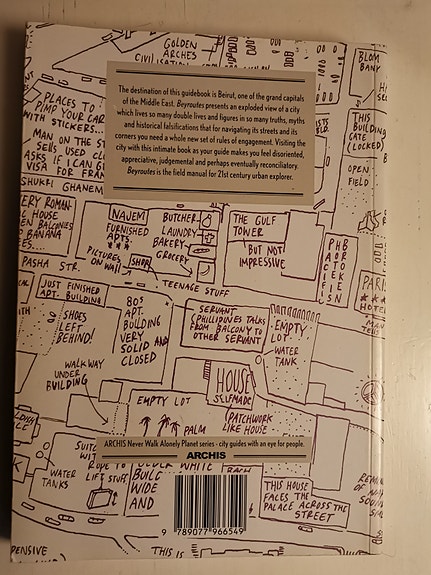 GOLDEN
ARCHES
CIVILISATION
BLOM
BANK
The destination of this guidebook is Beirut, one of the grand capitals
of the Middle East. Beyroutes presents an exploded view of a city
which lives so many double lives and figures in so many truths, myths
and historical falsifications that for navigating its streets and its
corners you need a whole new set of rules of engagement. Visiting the
city with this intimate book as your guide makes you feel disoriented,
appreciative, judgemental and perhaps eventually reconciliatory.
Beyroutes is the field manual for 21st century urban explorer.
PLACES TO
PIMP YOUR CAR
WITH STICKERS...
MAN ON THE ST
SELLS USED
ASKS IF I CAN G
VISA FOR FRAN
THIS
BUILDING
GATE
(LOCKED)
OPEN
FIELD
SHUKFI GHANEM
ERY ROMAN
HOUSE
EN BALCONIES
BANANA
ES...
NAJEM
FURNISHED
APTS.
BUTCHER
LAUNDRY
BAKERY
GROCERY
THE GULF
TOWER
BUT NOT
IMPRESSIVE
PICTURES
ON WALL
SHOP
PASHA STR.
TEENAGE STUFF
PARIS
HOTEL
MAN
JUST FINISHED
APT. BUILDING
SHOES
LEFT
BEHIND!
80s
APT.
BUILDING
VERY
SOLID AND
CLOSED
SERVANT
(PHILIPINES) TALKS
FROM BALCONY TO
OTHER SERVANT
EMPTY
LOT
WATER
TANK
WALKWAY
UNDER
BUILDING
HOUSE
SELFMADE
EMPTY LOT
PALM
PATCHWORK
LIKE HOUSE
ARCHIS Never Walk Alonely Planet series - city guides with an eye for people.
ARCHIS
WATER
TANKS
LIFT STUFF
WHITE
BUILD
WIDE
AND
THIS HOUSE
FACES THE
PALACE ACROSS THE
STREET
9 789077 966549
PENSIVE
THIS IS